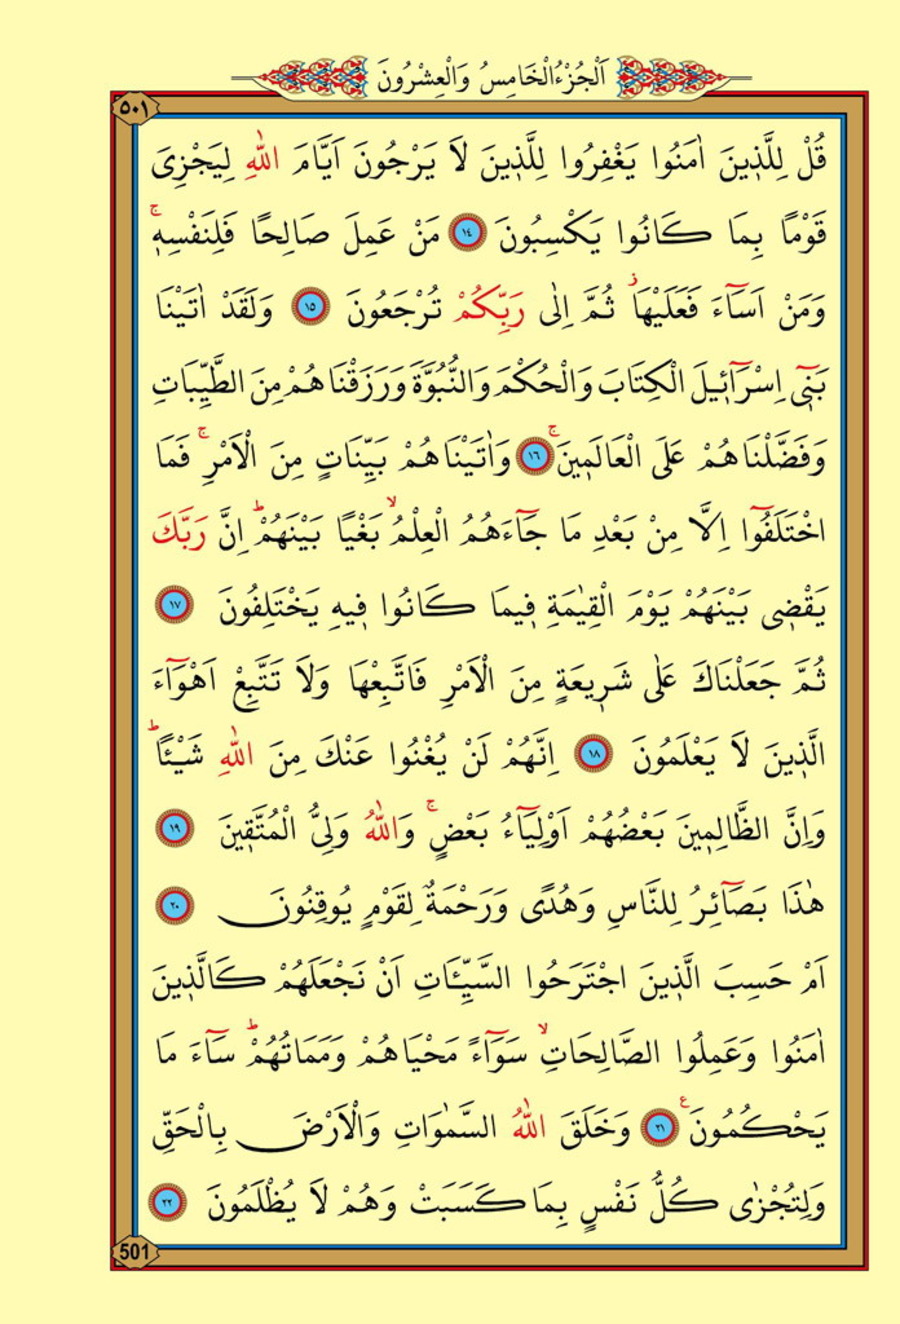 اَلْجُزْءُ الْخَامِسُ وَالْعِشْرُونَ
٥٠١
قُلْ لِلَّذ۪ينَ اٰمَنُوا يَغْفِرُوا لِلَّذ۪ينَ لَا يَرْجُونَ اَيَّامَ اللّٰهِ لِيَجْزِيَ
قَوْمًا بِمَا كَانُوا يَكْسِبُونَ ﴿١٤﴾ مَنْ عَمِلَ صَالِحًا فَلِنَفْسِه۪ۚ
وَمَنْ اَسَٓاءَ فَعَلَيْهَاۘ ثُمَّ اِلٰى رَبِّكُمْ تُرْجَعُونَ ﴿١٥﴾ وَلَقَدْ اٰتَيْنَا
بَن۪ٓي اِسْرَٓائ۪لَ الْكِتَابَ وَالْحُكْمَ وَالنُّبُوَّةَ وَرَزَقْنَاهُمْ مِنَ الطَّيِّبَاتِ
وَفَضَّلْنَاهُمْ عَلَى الْعَالَم۪ينَۚ ﴿١٦﴾ وَاٰتَيْنَاهُمْ بَيِّنَاتٍ مِنَ الْاَمْرِۚ فَمَا
اخْتَلَفُٓوا اِلَّا مِنْ بَعْدِ مَا جَٓاءَهُمُ الْعِلْمُۙ بَغْيًا بَيْنَهُمْۜ اِنَّ رَبَّكَ
يَقْض۪ي بَيْنَهُمْ يَوْمَ الْقِيٰمَةِ ف۪يمَا كَانُوا ف۪يهِ يَخْتَلِفُونَ ﴿١٧﴾
ثُمَّ جَعَلْنَاكَ عَلٰى شَر۪يعَةٍ مِنَ الْاَمْرِ فَاتَّبِعْهَا وَلَا تَتَّبِعْ اَهْوَٓاءَ
الَّذ۪ينَ لَا يَعْلَمُونَ ﴿١٨﴾ اِنَّهُمْ لَنْ يُغْنُوا عَنْكَ مِنَ اللّٰهِ شَيْـًٔاۜ
وَاِنَّ الظَّالِم۪ينَ بَعْضُهُمْ اَوْلِيَٓاءُ بَعْضٍۚ وَاللّٰهُ وَلِيُّ الْمُتَّق۪ينَ ﴿١٩﴾
هٰذَا بَصَٓائِرُ لِلنَّاسِ وَهُدًى وَرَحْمَةٌ لِقَوْمٍ يُوقِنُونَ ﴿٢٠﴾
اَمْ حَسِبَ الَّذ۪ينَ اجْتَرَحُوا السَّيِّـَٔاتِ اَنْ نَجْعَلَهُمْ كَالَّذ۪ينَ
اٰمَنُوا وَعَمِلُوا الصَّالِحَاتِۙ سَوَٓاءً مَحْيَاهُمْ وَمَمَاتُهُمْۜ سَٓاءَ مَا
يَحْكُمُونَ۟ ﴿٢١﴾ وَخَلَقَ اللّٰهُ السَّمٰوَاتِ وَالْاَرْضَ بِالْحَقِّ
وَلِتُجْزٰى كُلُّ نَفْسٍ بِمَا كَسَبَتْ وَهُمْ لَا يُظْلَمُونَ ﴿٢٢﴾
501